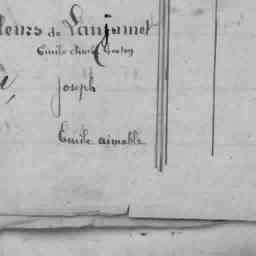 leurs de Lanjamet
Emile Charles Gaston
Joseph
Emile aimable